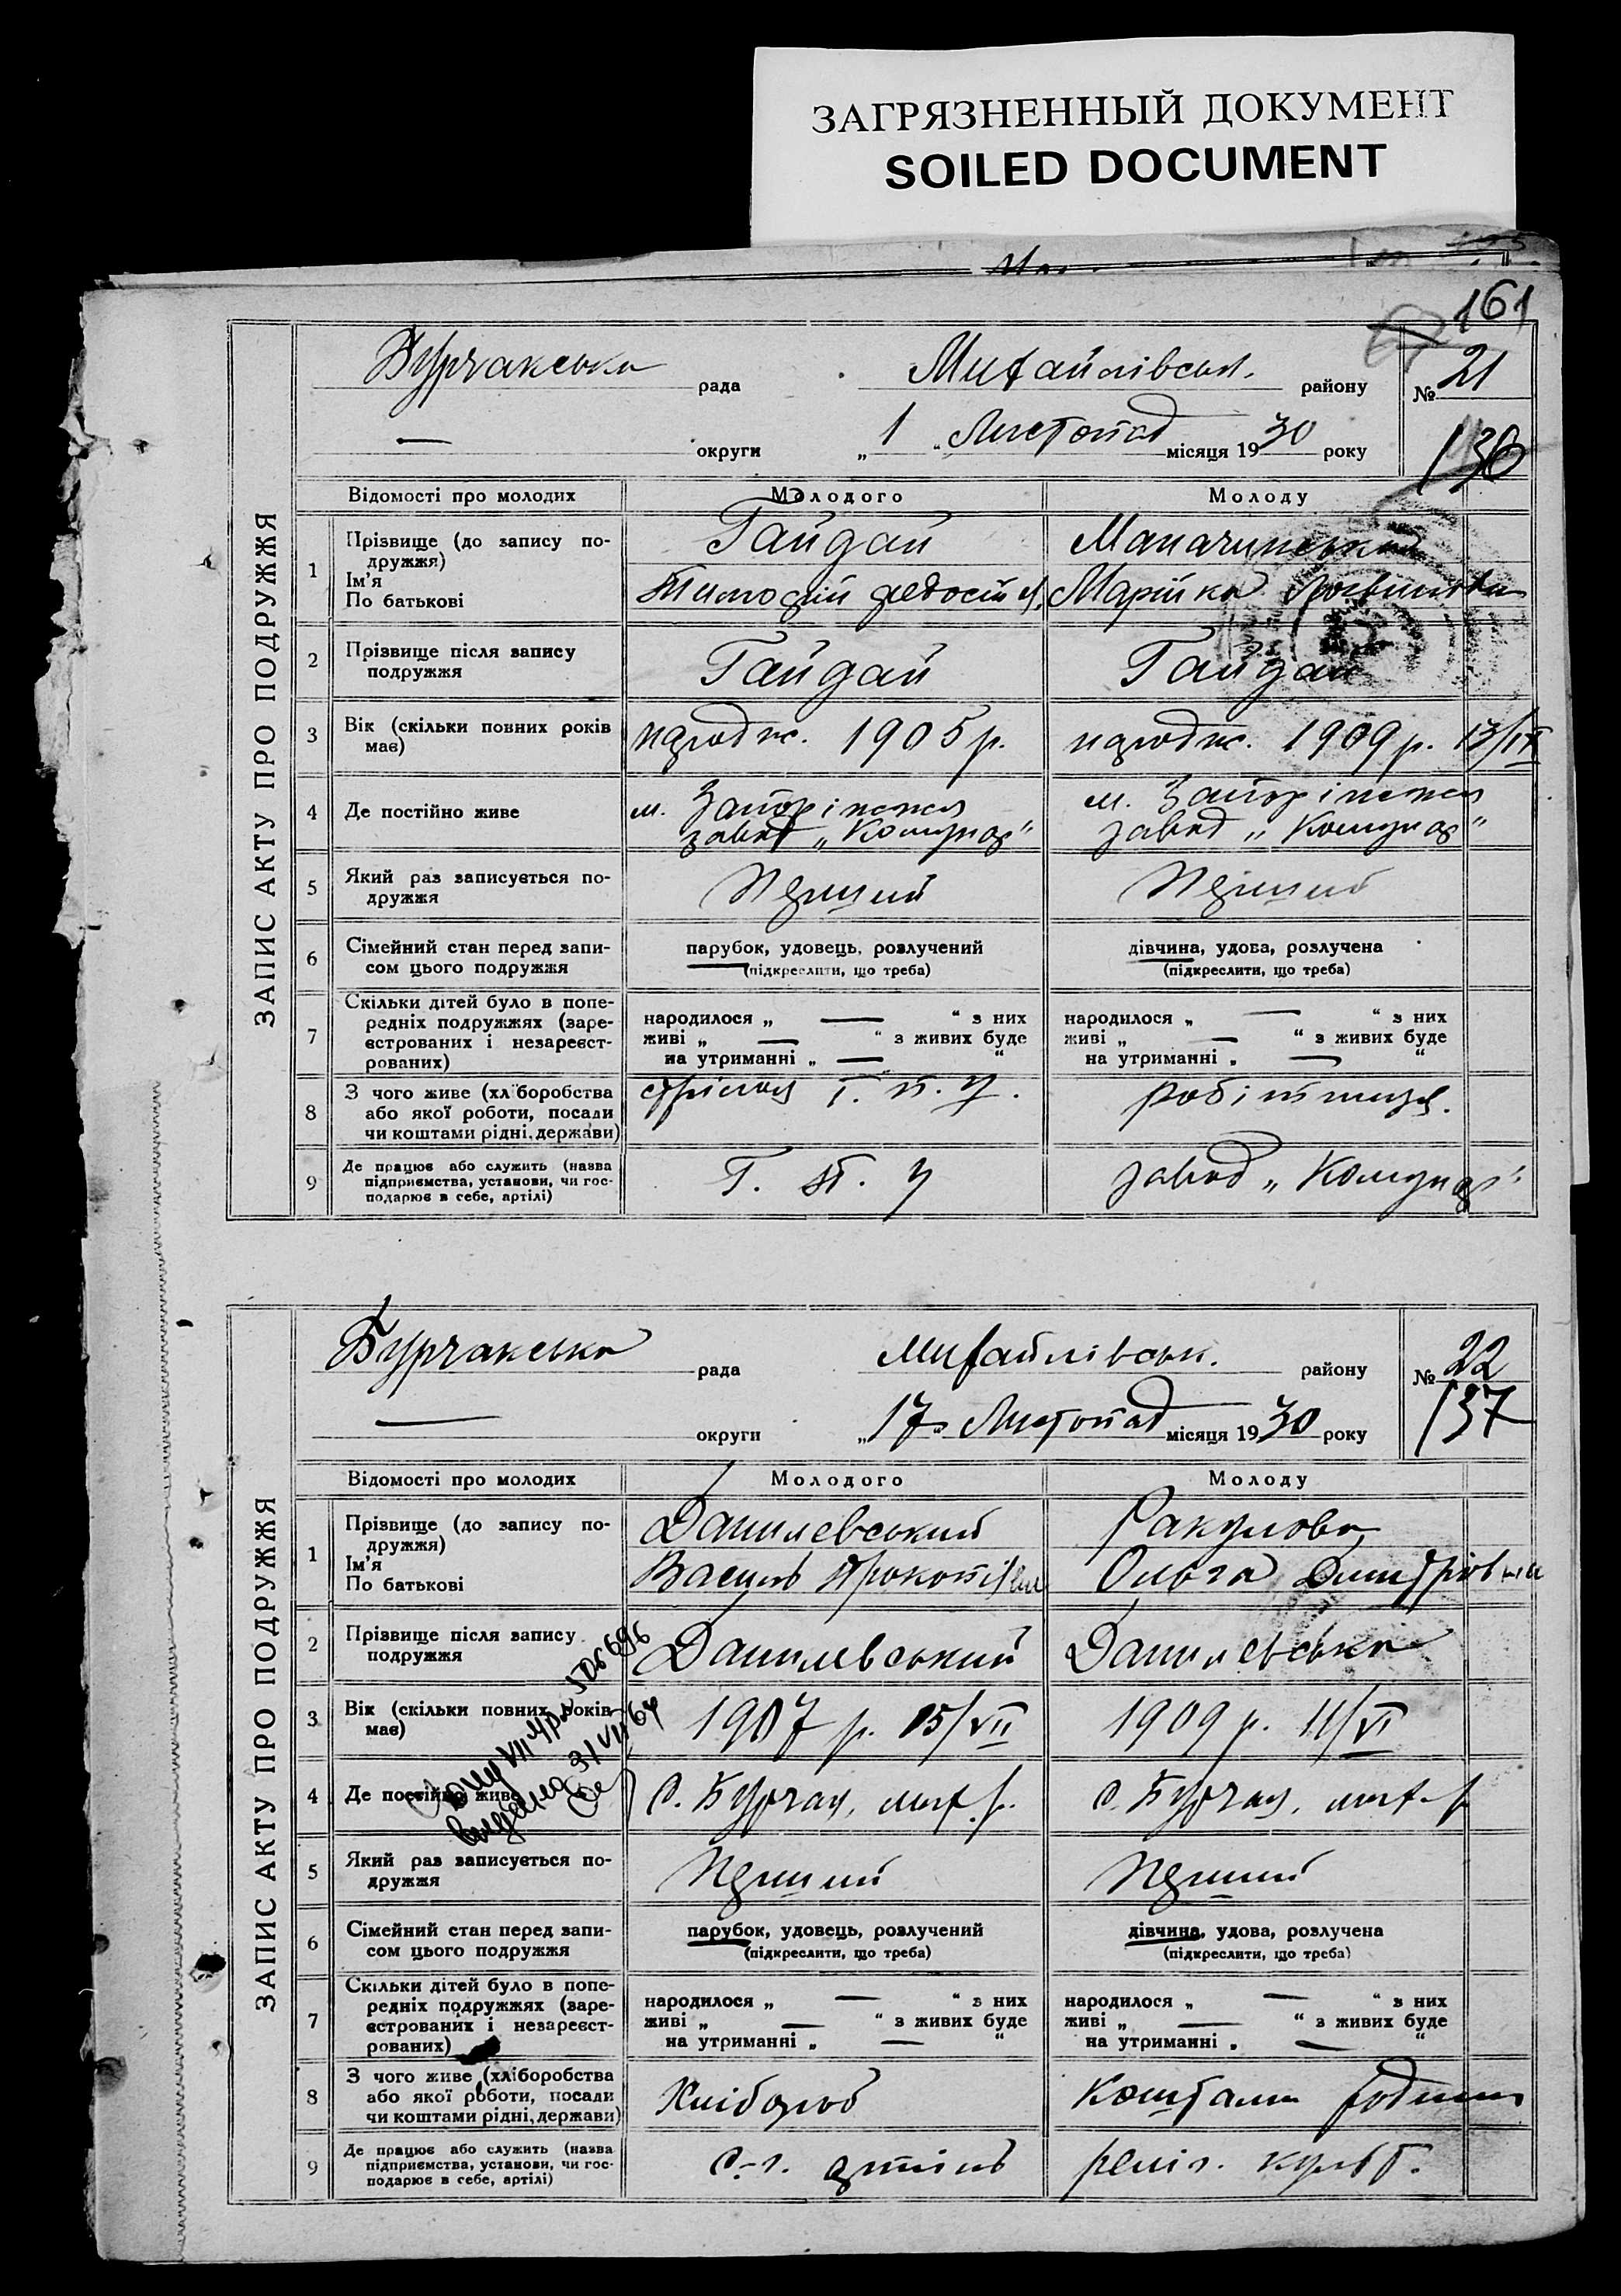 ЗАГРЯЗНЕННЫЙ ДОКУМЕНТ
SOILED DOCUMENT
161
Бурчакська рада Михайлівськ. району № 21
— округи „ 1 “ Листопад місяця 1930 року
136
ЗАПИС АКТУ ПРО ПОДРУЖЖЯ
Відомості про молодих Молодого Молоду
1 Прізвище (до запису по-
дружжя)
Ім’я
По батькові
Гайдай
Тимофій Федосій
Марійка
2 Прізвище після запису
подружжя
Гайдай Гайдай
3 Вік (скільки повних років
має)
народж. 1905 р. народж. 1909 р. 13/IX
4 Де постійно живе
м. Запоріжжя
завод „Комунар“
м. Запоріжжя
завод „Комунар“
5 Який раз записується по-
дружжя
Перший Перший
6 Сімейний стан перед запи-
сом цього подружжя
парубок, удовець, розлучений
(підкреслити, що треба)
дівчина, удова, розлучена
(підкреслити, що треба)
7 Скільки дітей було в попе-
редніх подружжях (заре-
єстрованих і незареєст-
рованих)
народилося „ — “ з них
живі „ — “ з живих буде
на утриманні „ — “
народилося „ — “ з них
живі „ — “ з живих буде
на утриманні „ — “
8 З чого живе (хліборобства
або якої роботи, посади
чи коштами рідні, держави)
Г. П. У. робітниця.
9 Де працює або служить (назва
підприємства, установи, чи гос-
подарює в себе, артілі)
Г. П. У завод „Комунар“
Бурчакська рада Михайлівськ. району № 22
— округи „17“ Листопад місяця 1930 року
137
ЗАПИС АКТУ ПРО ПОДРУЖЖЯ
Відомості про молодих Молодого Молоду
1 Прізвище (до запису по-
дружжя)
Ім’я
По батькові
Данилевський
Василь Прокопів
Ракулова
Ольга Дмитрівна
2 Прізвище після запису
подружжя
Данилевський Данилевська
3 Вік (скільки повних років
має)
1907 р. 15/VII 1909 р. 11/VI
4 Де постійно живе
с. Бурчак, мих. р. с. Бурчак, мих. р
VII 506696
видана 31 VII 64
5 Який раз записується по-
дружжя
Перший Перший
6 Сімейний стан перед запи-
сом цього подружжя
парубок, удовець, розлучений
(підкреслити, що треба)
дівчина, удова, розлучена
(підкреслити, що треба)
7 Скільки дітей було в попе-
редніх подружжях (заре-
єстрованих і незареєст-
рованих)
народилося „ — “ з них
живі „ — “ з живих буде
на утриманні „ — “
народилося „ — “ з них
живі „ — “ з живих буде
на утриманні „ — “
8 З чого живе (хліборобства
або якої роботи, посади
чи коштами рідні, держави)
Хлібороб Коштами родини
9 Де працює або служить (назва
підприємства, установи, чи гос-
подарює в себе, артілі)
с.-г. артіль